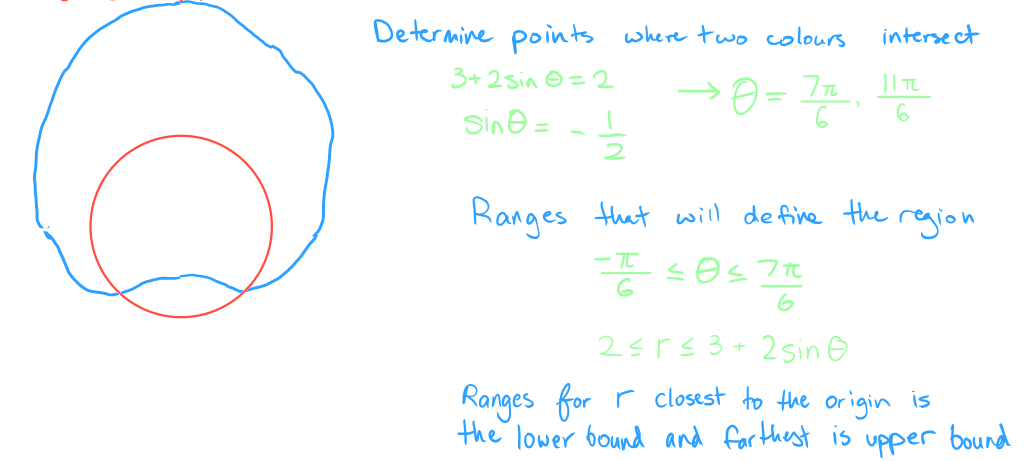 Determine points where two colours intersect
3+2sinθ=2 → θ = 7π/6, 11π/6
sinθ = -1/2
Ranges that will define the region
-π/6 ≤ θ ≤ 7π/6
2 ≤ r ≤ 3 + 2sinθ
Ranges for r closest to the origin is
the lower bound and farthest is upper bound